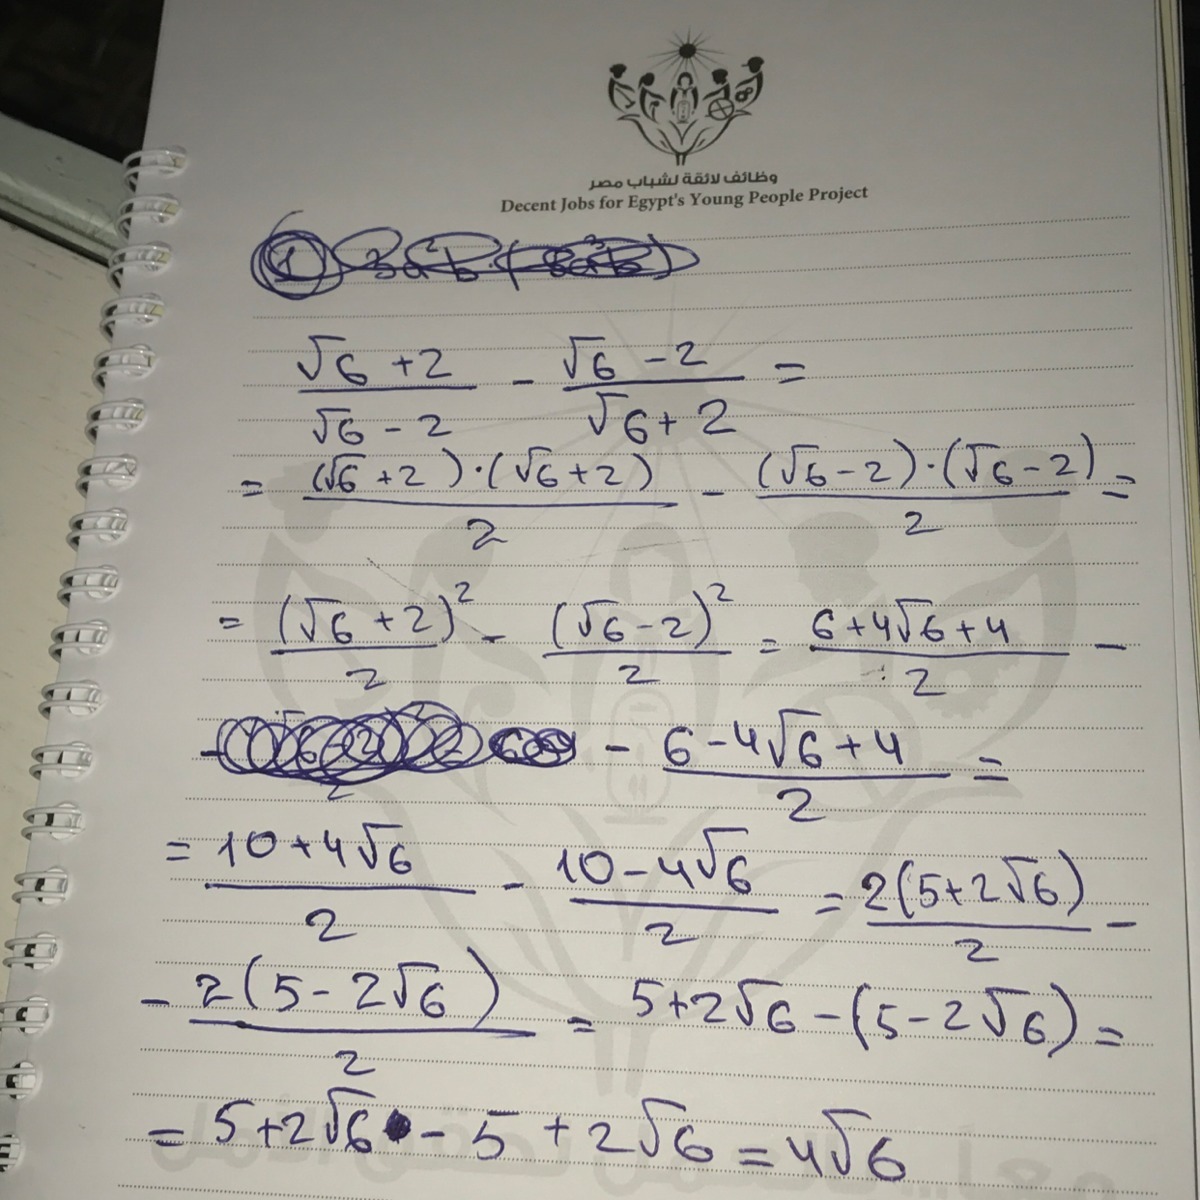 وظائف لائقة لشباب مصر
Decent Jobs for Egypt's Young People Project
√6 +2 / √6 - 2 - √6 - 2 / √6 + 2 =
= (√6 + 2)·(√6 + 2) / 2 - (√6 - 2)·(√6 - 2) / 2 =
= (√6 + 2)² / 2 - (√6 - 2)² / 2 = 6 + 4√6 + 4 / 2 -
- 6 - 4√6 + 4 / 2 =
= 10 + 4√6 / 2 - 10 - 4√6 / 2 = 2(5 + 2√6) / 2 -
- 2(5 - 2√6) / 2 = 5 + 2√6 - (5 - 2√6) =
= 5 + 2√6 - 5 + 2√6 = 4√6